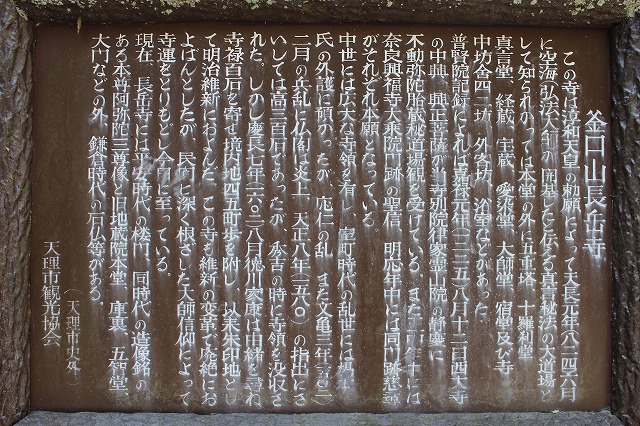 釜口山長岳寺
この寺は淳和天皇の勅願によって天長元年(八二四)六月
に空海(弘法大師)が開基したと伝える真言秘法の大道場と
して知られかつては本堂の外に五重塔、十羅刹堂、
真言堂、経蔵、宝蔵、愛染堂、大師堂、宿堂及び寺
中坊舎四二坊、外客坊、浴室などがあった。
普賢院記録によれば嘉禎元年(一二三五)八月十二日西大寺
の中興、興正菩薩が当寺別院律宗霊山院の静慮に
不動弥陀胎蔵秘道場観を受けている。また
奈良興福寺大乗院門跡の聖信、明応年中には同門跡慈尋
がそれぞれ本願となっている。
中世には広大な寺領を有し、室町時代の乱世には
氏の外護に預かったが、応仁の乱、また文亀三年(一五〇三)
二月の兵乱に仏閣は炎上、天正八年(一五八〇)の指出にさ
いしては高三百石であったが、秀吉の時に寺領を没収さ
れた。しかし慶長七年(一六〇二)八月徳川家康は由緒を尋ね
寺禄百石を寄せ境内地四五町歩を附し、以来朱印地とし
て明治維新におよんだ。この寺も維新の変革で廃絶にお
よばんとしたが、民間に深く根ざした大師信仰によって
寺運をとりもどし今日に至っている。
現在、長岳寺には平安時代の楼門、同時代の造像銘の
ある本尊阿弥陀三尊像と旧地蔵院本堂、庫裏、五智堂、
大門などの外、鎌倉時代の石仏等がある。
(天理市史外)
天理市観光協会